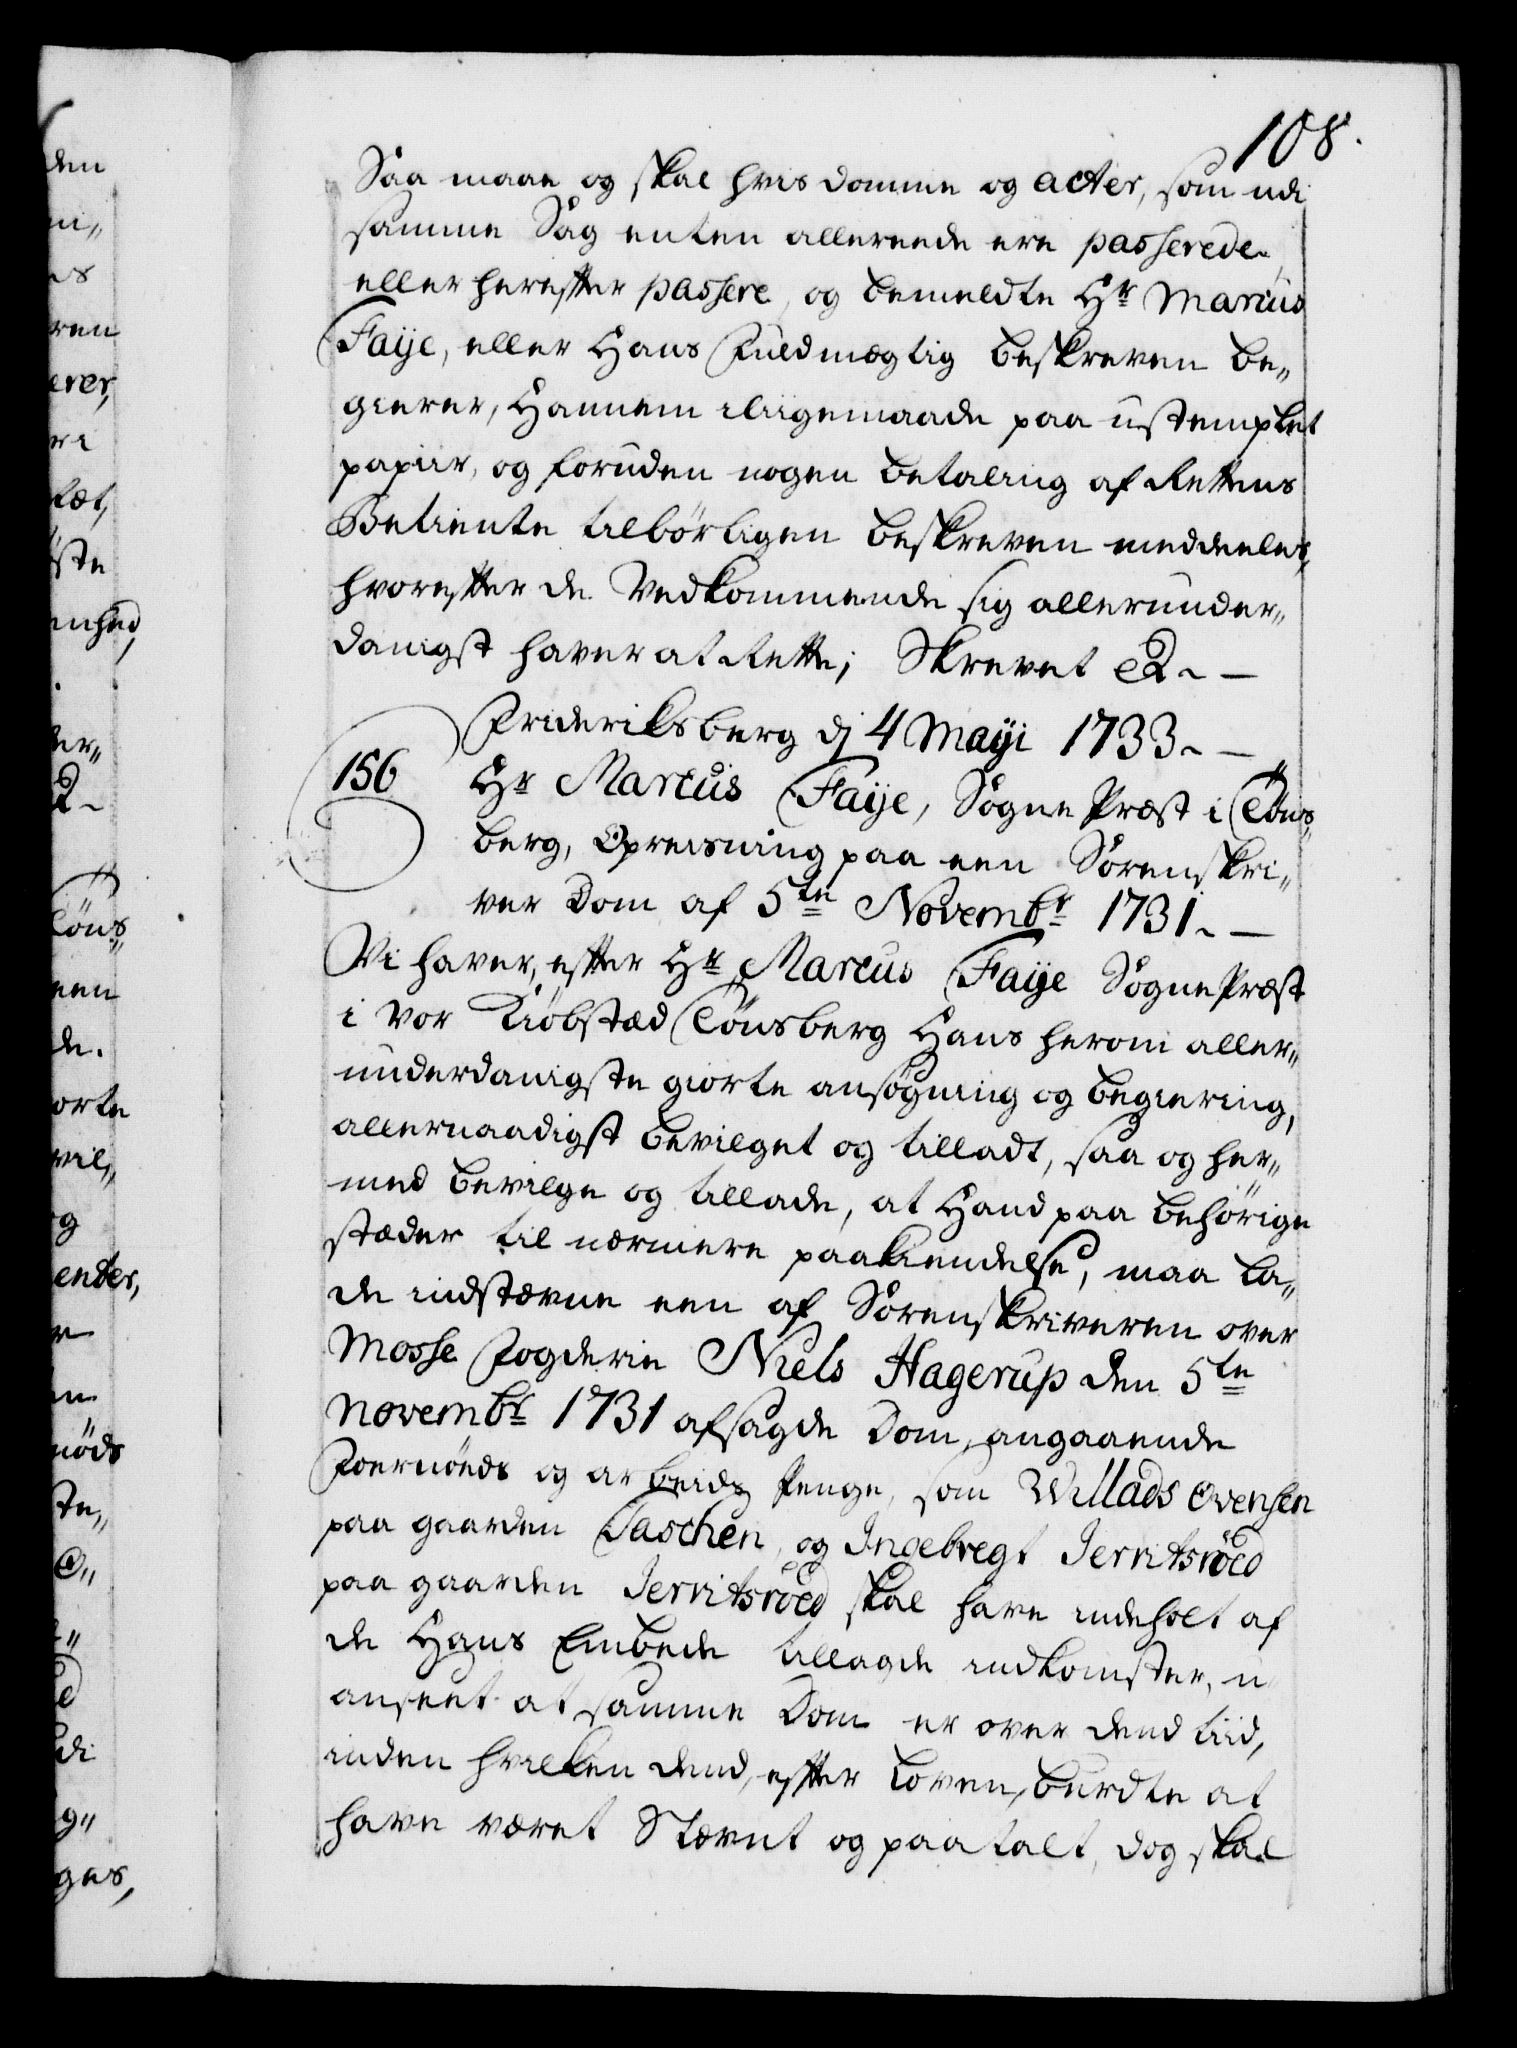 108.
Saa maae og skal hvis domme og acter, som udi
samme Sag enten allereede ere passerede,
eller herefter passere, og bemeldte Hr Marcus
Faÿe, eller Hans Fuldmægtig beskreven be„
gierer, Hannem iliigemaade paa ustemplet
papiir, og foruden nogen betaling af Rettens
Betiente tilbørligen beskreven meddeeles,
hvorefter de Vedkommende sig allerunder„
danigst haver at Rette; Skrevet &.
Frideriksberg dj 4 Maÿi 1733.
156 Hr Marcus Faÿe, Sogne Præst i Töns„
berg, Opreisning paa een Sorenskri„
ver Dom af 5te Novembr 1731.
Vi haver, efter Hr Marcus Faÿe Sogne Præst
i vor Kiøbstæd Tönsberg Hans herom aller„
underdanigste giorte ansøgning og begiering,
allernaadigst bevilget og tilladt, saa og her„
med bevilge og tillade, at Hand paa behørige
stæder til nærmere paakiendelse, maa la„
de indstævne een af Sorenskriveren over
Mosse Fogderie Niels Hagerup den 5te
Novembr 1731 afsagde Dom, angaaende
Foernöeds og arbeids Penge, som Willads Evensen
paa gaarden Taschen, og Ingebregt Jerritsröed
paa gaarden Jerritsröed skal have indeholt af
de Hans Embede tillagde indkomster, u„
anseet at samme Dom er over dend tiid,
inden hvilken dend, efter Loven, burdte at
have været Stævnt og paatalt, dog skal
den
ns
ren
erer,
læt,
enhed,
Töns„
een
de.
orte
vil„
g
enter,
nöds
ste„
di
ges,